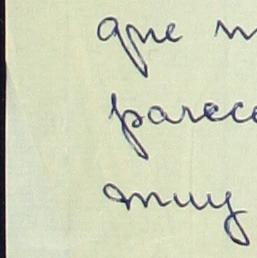 que
parece
muy